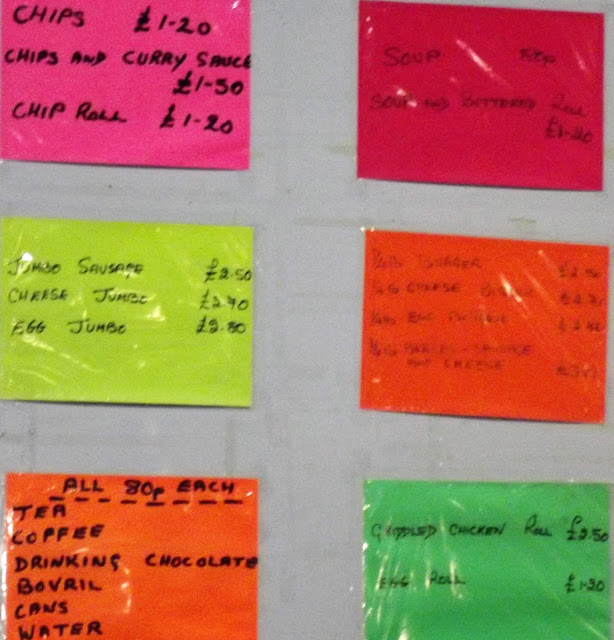 CHIPS £1-20
CHIPS AND CURRY SAUCE
£1-50
CHIP ROLL £1-20
SOUP
SOUP AND BUTTERED ROLL
£1-20
JUMBO SAUSAGE £2.50
CHEESE JUMBO £2.70
EGG JUMBO £2.80
1/4LB BURGER £2.50
1/4LB CHEESE BURGER
1/4LB EGG BURGER
AND CHEESE
ALL 80p EACH
TEA
COFFEE
DRINKING CHOCOLATE
BOVRIL
CANS
WATER
GRIDDLED CHICKEN ROLL £2.50
EGG ROLL £1-20